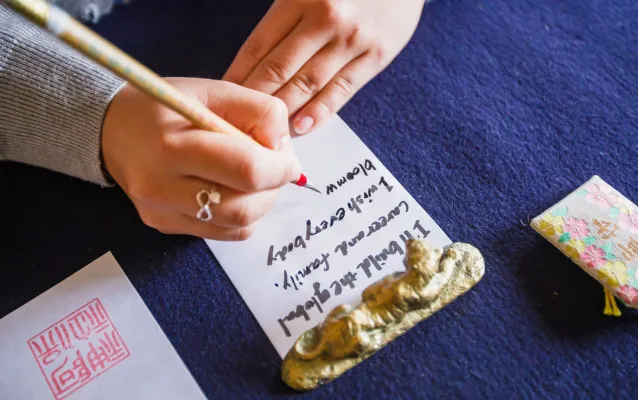 I'll build the global
career and family.
I wish everybody
bloomw